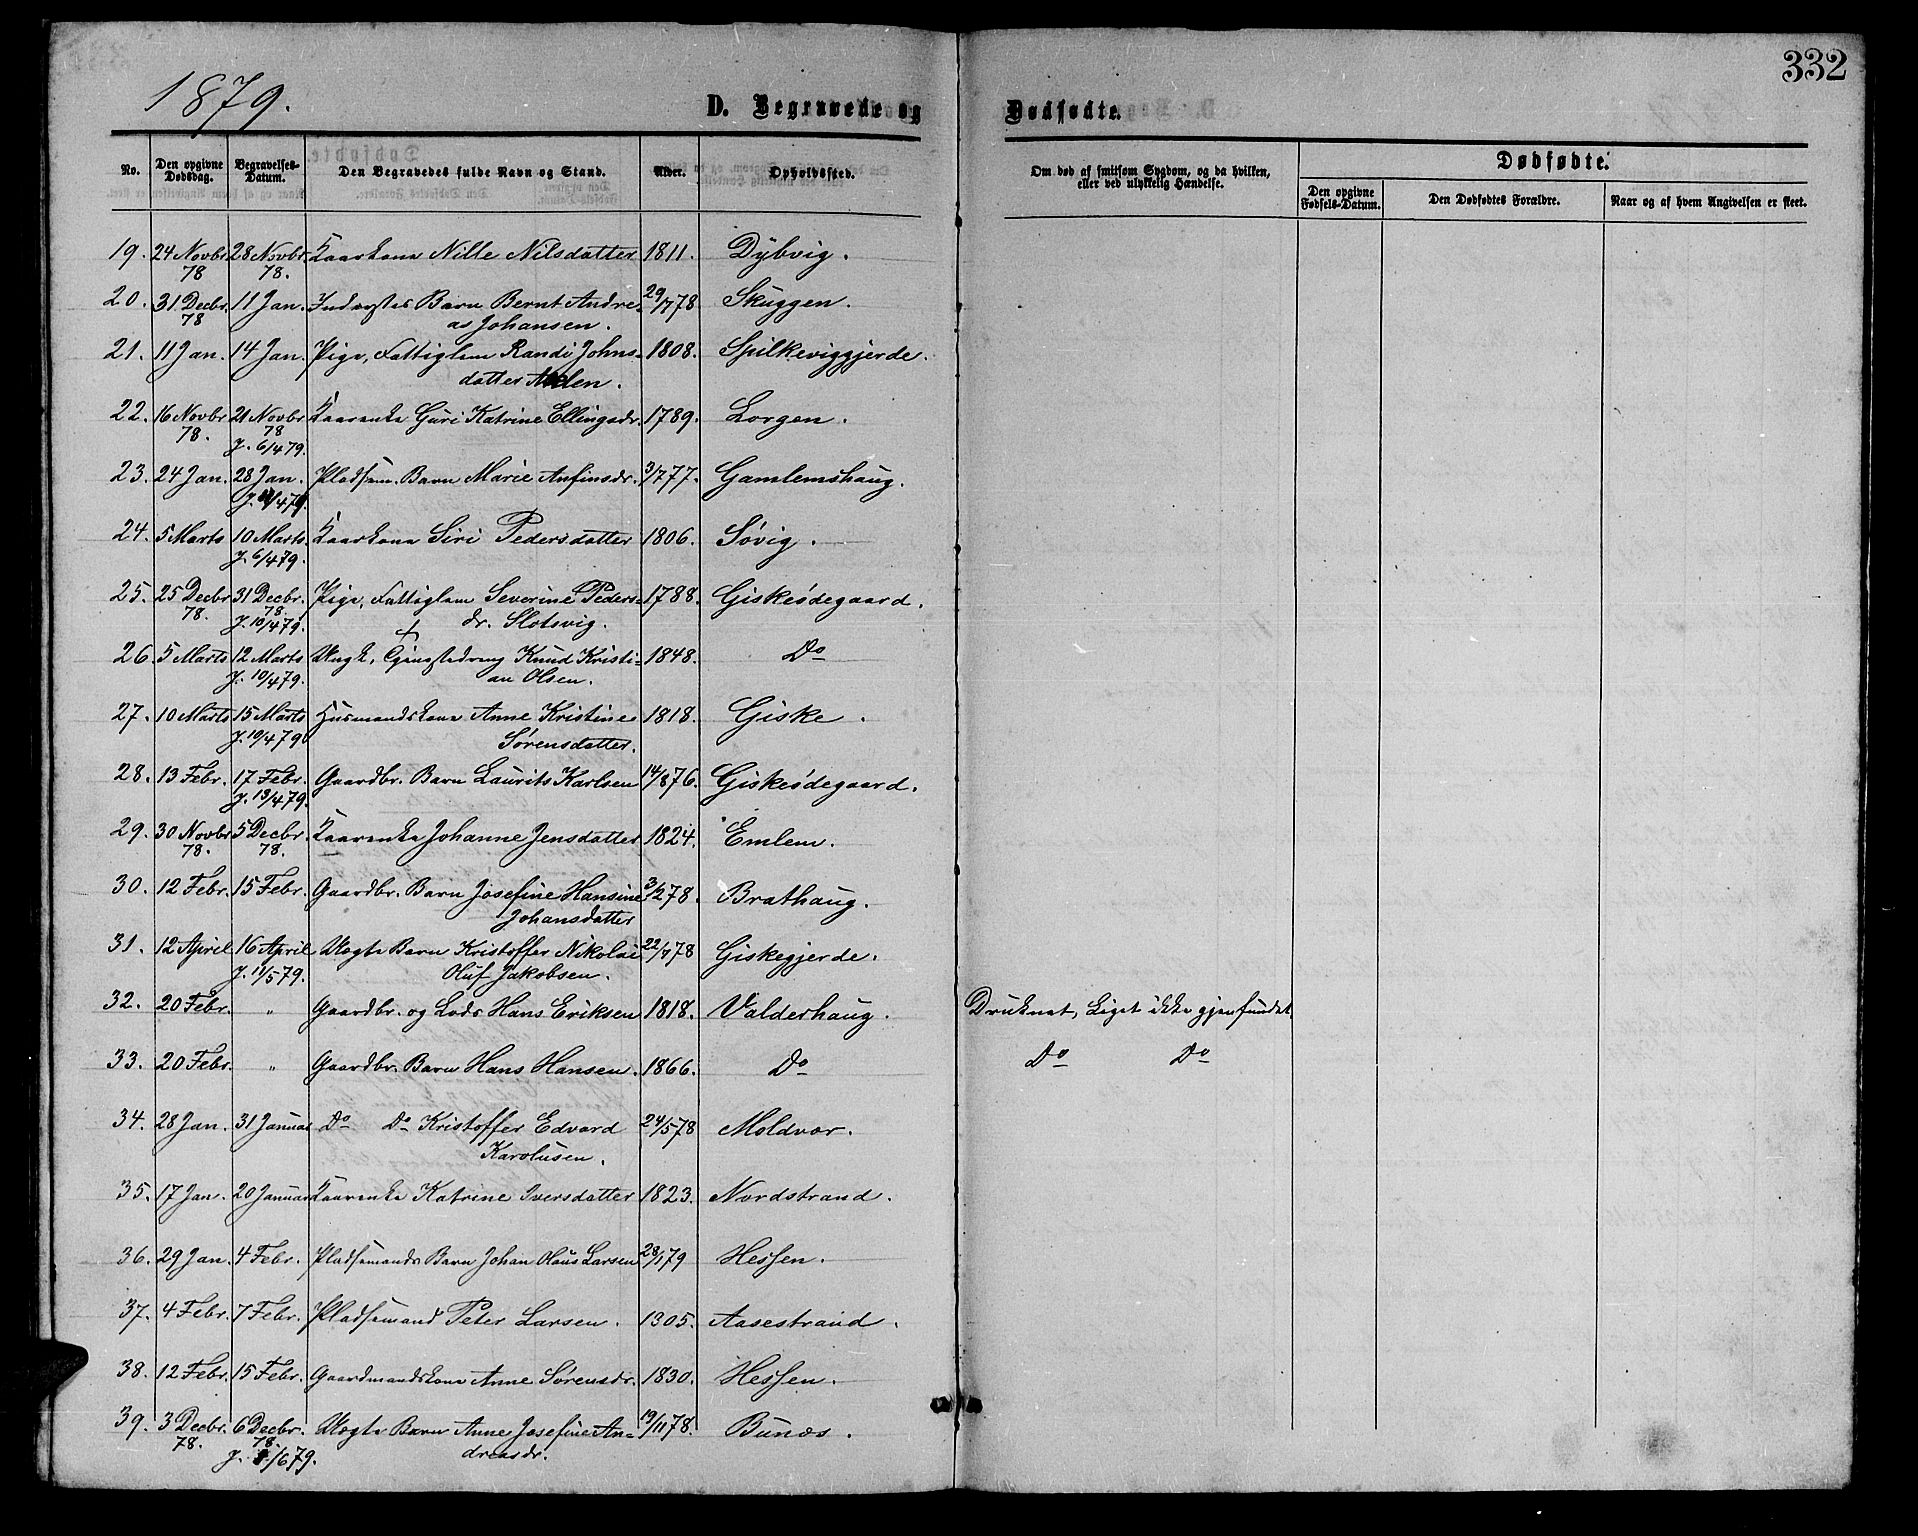 332
1879.
D. Begravede og Dødfødte.
No. Den opgivne Dødsdag. Begravelses-Datum. Den Begravedes fulde Navn og Stand. Alder. Opholdssted. Om død af smitsom Sygdom, og da hvilken, eller ved ulykkelig Hændelse. Dødfødte.
Den opgivne Fødsels-Datum. Den Dødfødtes Forældre. Naar og af hvem Angivelsen er skeet.
19. 24 Novbr 78 28 Novbr 78. Kaarkone Nille Nilsdatter 1811. Dybvig.
20. 31 Decbr. 78 11 Jan. Inderstes Barn Bernt Andre-
as Johansen. 29/7 78 Skuggen.
21. 11 Jan. 14 Jan. Pige, Fattiglem Randi Johns-
datter 1808. Spilkeviggjerde.
22. 16 Novbr 78. 21 Novbr 78 J. 6/4 79. Kaarenke Guri Katrine Ellingsdr. 1789. Lorgen.
23. 24 Jan. 28 Jan. Pladsem. Barn Marie Anfinsdr. 3/7 77. Gamlemshaug.
24. 5 Marts 10 Marts J. 6/4 79. Kaarkone Siri Pedersdatter 1806. Søvig.
25. 25 Decbr 78. 31 Decbr. 78 J. 10/4 79. Pige, Fattiglem Severine Peders-
dr. Slotsvig. 1788. Giskeødegaard.
26. 5 Marts 12 Marts J. 10/4 79. Ungk, Tjenestedreng Knud Kristi-
an Olsen. 1848. Do
27. 10 Marts 15 Marts J. 10/4 79 Husmandskone Anne Kristine
Sørensdatter. 1818. Giske.
28. 13 Febr. 17 Febr. J. 13/4 79. Gaardbr. Barn Laurits Karlsen 14/8 76. Giskeødegaard.
29. 30 Novbr 78. 5 Decbr. 78. Kaarenke Johanne Jensdatter 1824. Emlem.
30. 12 Febr. 15 Febr. Gaardbr. Barn Josefine Hansine
Johansdatter 3/2 78. Brathaug.
31. 12 April 16 April J. 11/5 79. Uægte Barn Kristoffer Nikolai
Oluf Jakobsen. 22/7 78 Giskegjerde.
32. 20 Febr. " Gaardbr. og Lods Hans Eriksen 1818. Valderhaug. Druknet, Liget ikke gjenfundet.
33. 20 Febr. " Gaardbr. Barn Hans Hansen. 1866. Do Do Do
34. 28 Jan. 31 Januar Do Do Kristoffer Edvard
Karolusen. 24/5 78 Moldvær.
35. 17 Jan. 20 Januar Kaarenke Katrine Iversdatter 1823. Nordstrand.
36. 29 Jan. 4 Febr. Pladsemands Barn Johan Olaus Larsen 28/1 79 Hessen.
37. 4 Febr. 7 Febr. Pladsemand Peter Larsen. 1805. Aasestrand.
38. 12 Febr. 15 Febr. Gaardmandskone Anne Sørensdr. 1830. Hessen.
39. 3 Decbr. 78. 6 Decbr. 78. Uægte Barn Anne Josefine An-
dreasdr. 19/11 78. Bunæs.